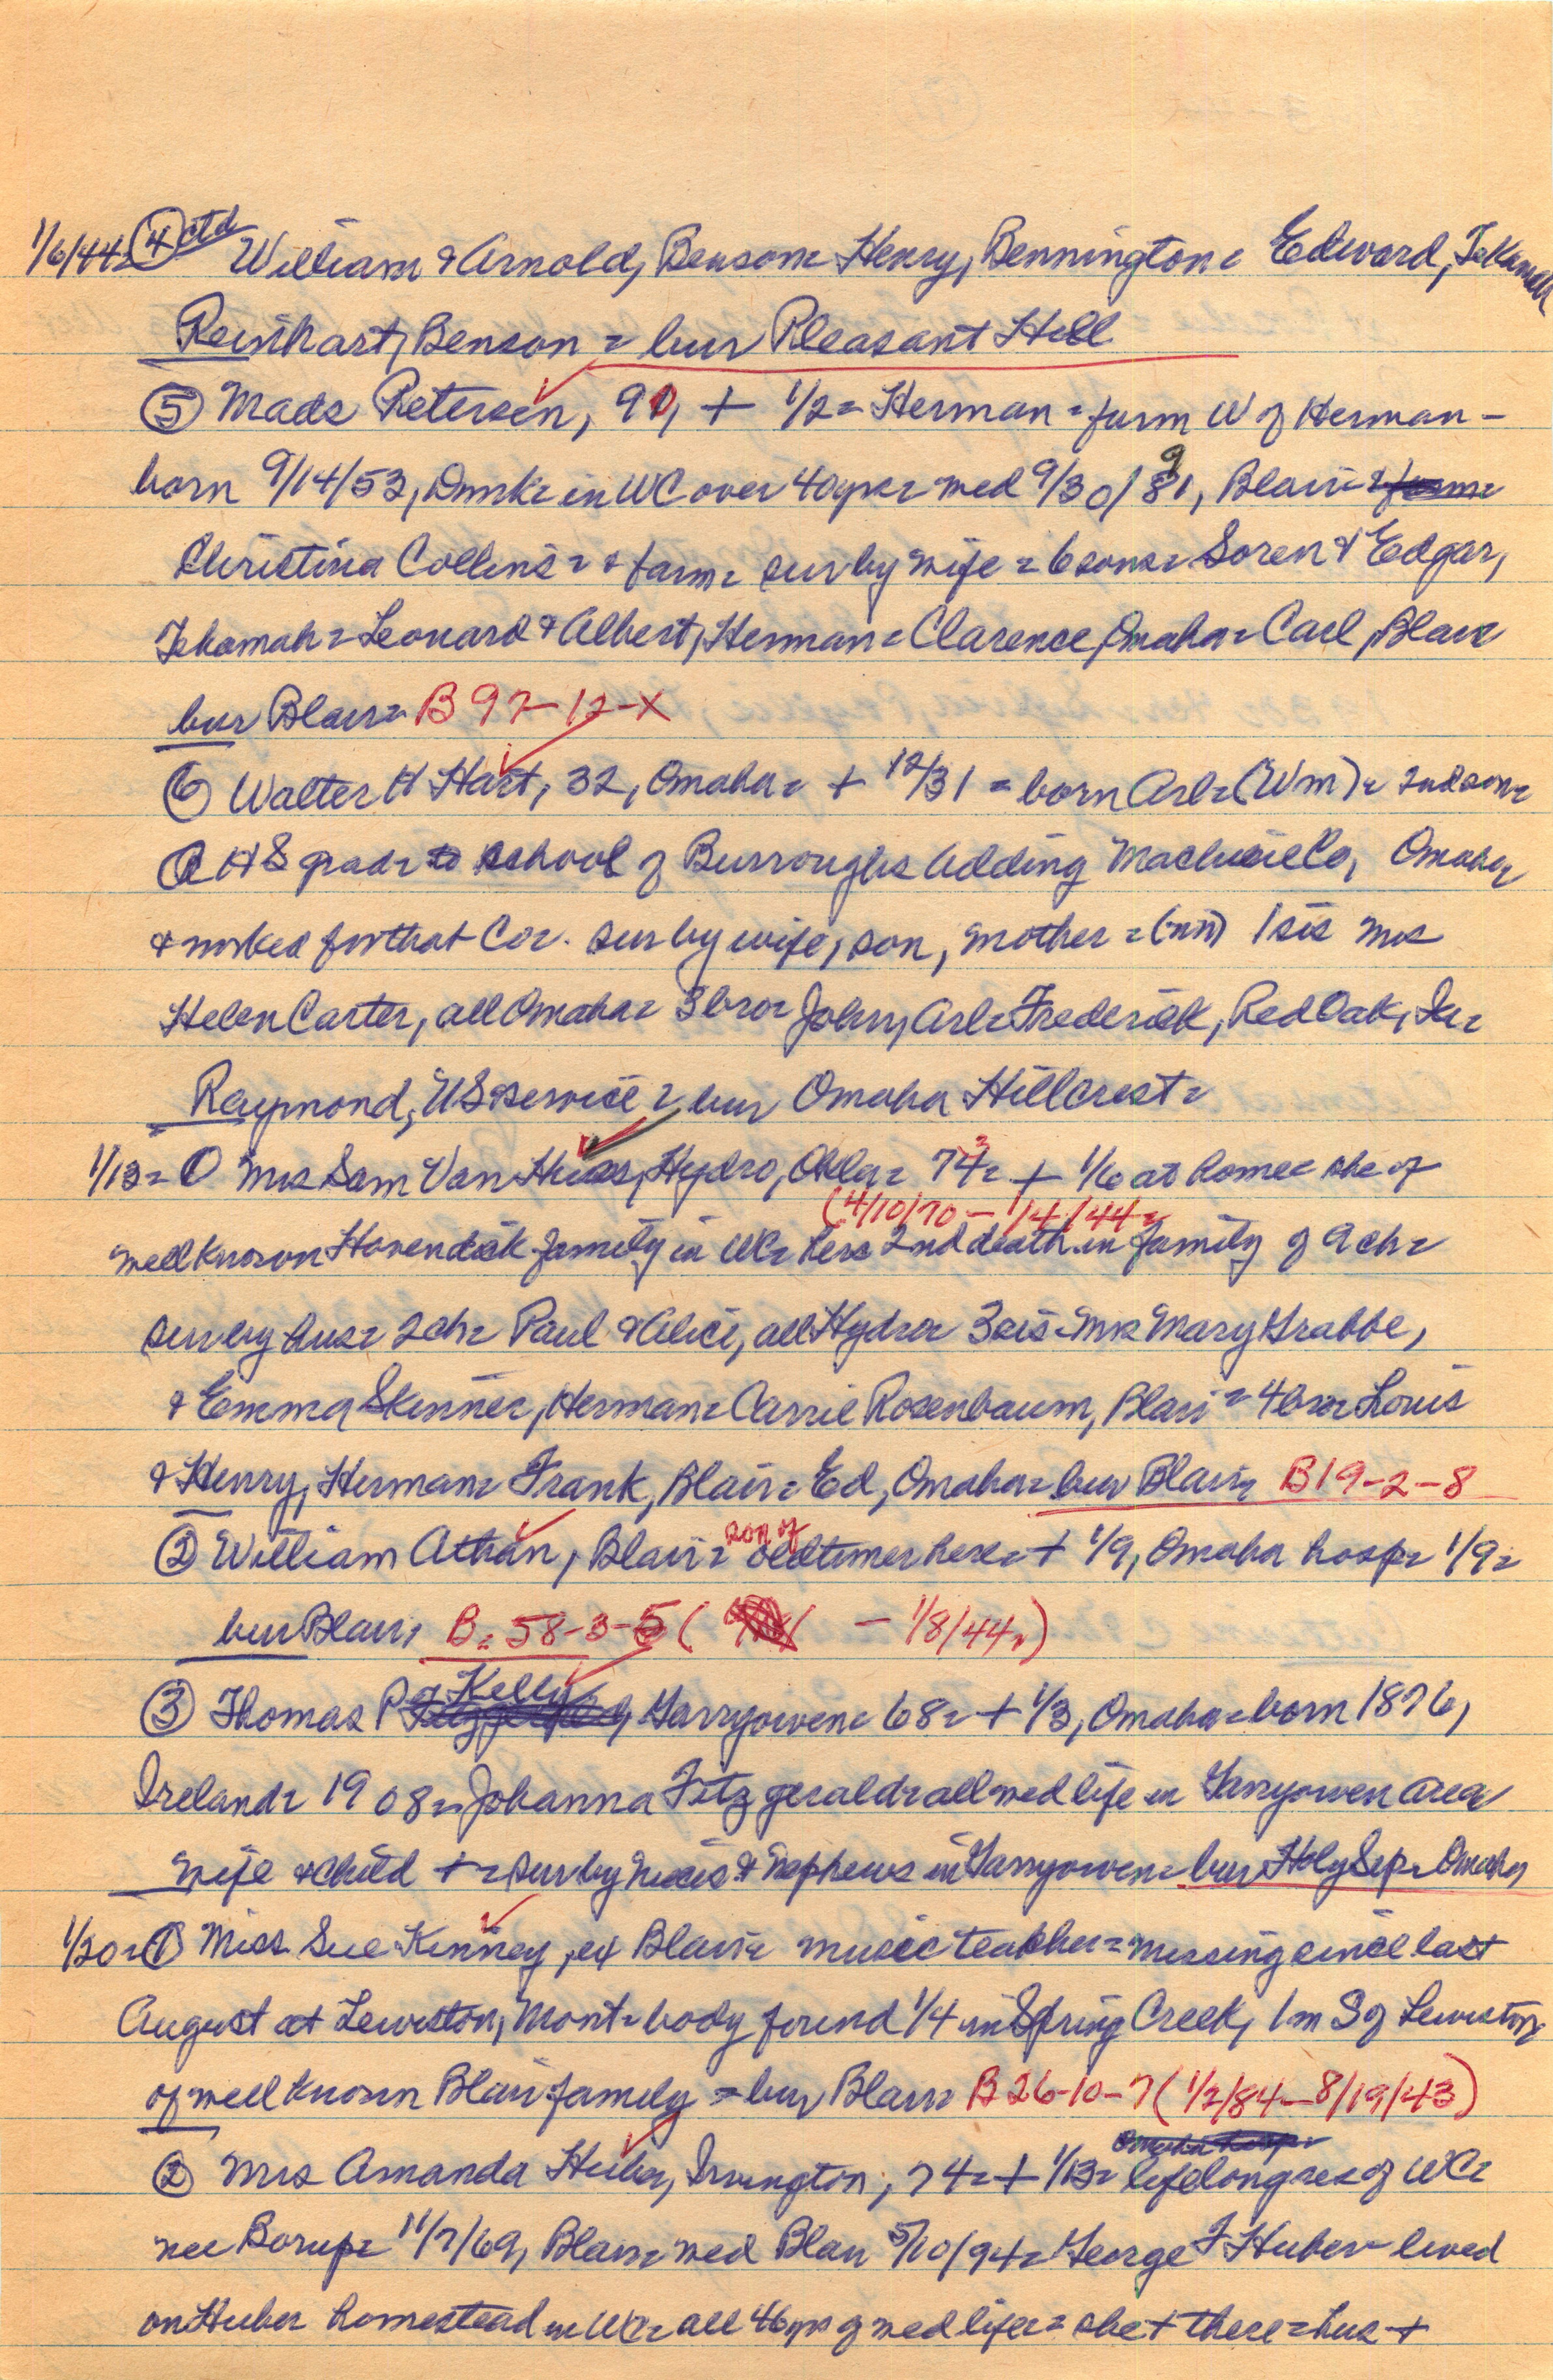 1/6/44= ④ ctd William & Arnold, Benson= Henry, Bennington= Edward, Tekamah
Reinhart, Benson = bur Pleasant Hill
⑤ Mads Petersen, 90, + 1/2= Herman = farm W of Herman -
born 9/14/53, Dmk= in WC over 40yrs= med 9/30/91, Blair= & farm=
Christina Collins= & farm= sur by wife = 6 sons= Soren & Edgar,
Tekamah= Leonard & Albert, Herman= Clarence, Omaha= Carl, Blair
bur Blair= B 97-12-X
⑥ Walter H Hart, 32, Omaha= + 12/31 = born Arl= (Wm)= 2nd son=
A H S grad= to school of Burroughs Adding Machine Co, Omaha
& worked for that Co=. sur by wife, son, mother = (nn) 1 sis Mrs
Helen Carter, all Omaha= 3 bro= John, Arl= Frederick, Red Oak, Ia=
Raymond, US Service = bur Omaha Hillcrest=
1/13= ① Mrs Sam Van Huss, Hydro, Okla= 73= + 1/6 at home= she of
(4/10/70 - 1/4/44=
well known Hovendick family in WC= hers 2nd death in family of 9 ch=
sur by hus= 2 ch= Paul & Alice, all Hydro= 3 sis= Mrs Mary Grabbe,
& Emma Skinner, Herman= Carrie Rosenbaum, Blair = 4 bro= Louis
& Henry, Herman= Frank, Blair= Ed, Omaha= bur Blair= B 19-2-8
② William Athan, Blair= son of oldtimer here= + 1/9, Omaha hosp= 1/9=
bur Blair, B= 58-3-5 ( - 1/8/44=)
③ Thomas P Kelly, Garryowen= 68= + 1/3, Omaha= born 1876,
Ireland= 1908= Johanna Fitzgerald= all med life in Garryowen area
wife & child += sur by nieces & nephews in Garryowen= bur Holy Sep= Omaha
1/20= ① Miss Sue Kinney, ex Blair= music teacher= missing since last
August at Lewiston, Mont= body found 1/4 in Spring Creek, 1 m S of Lewiston
of well known Blair family = bur Blair= B 26-10-7 (1/2/84-8/19/43)
Omaha hosp=
② Mrs Amanda Huber, Irvington, 74= + 1/13= lifelong res of WC=
nee Borup= 11/7/69, Blair= med Blair 5/10/94= George F Huber= lived
on Huber homestead in WC= all 46 yrs of med life= she + there= hus +